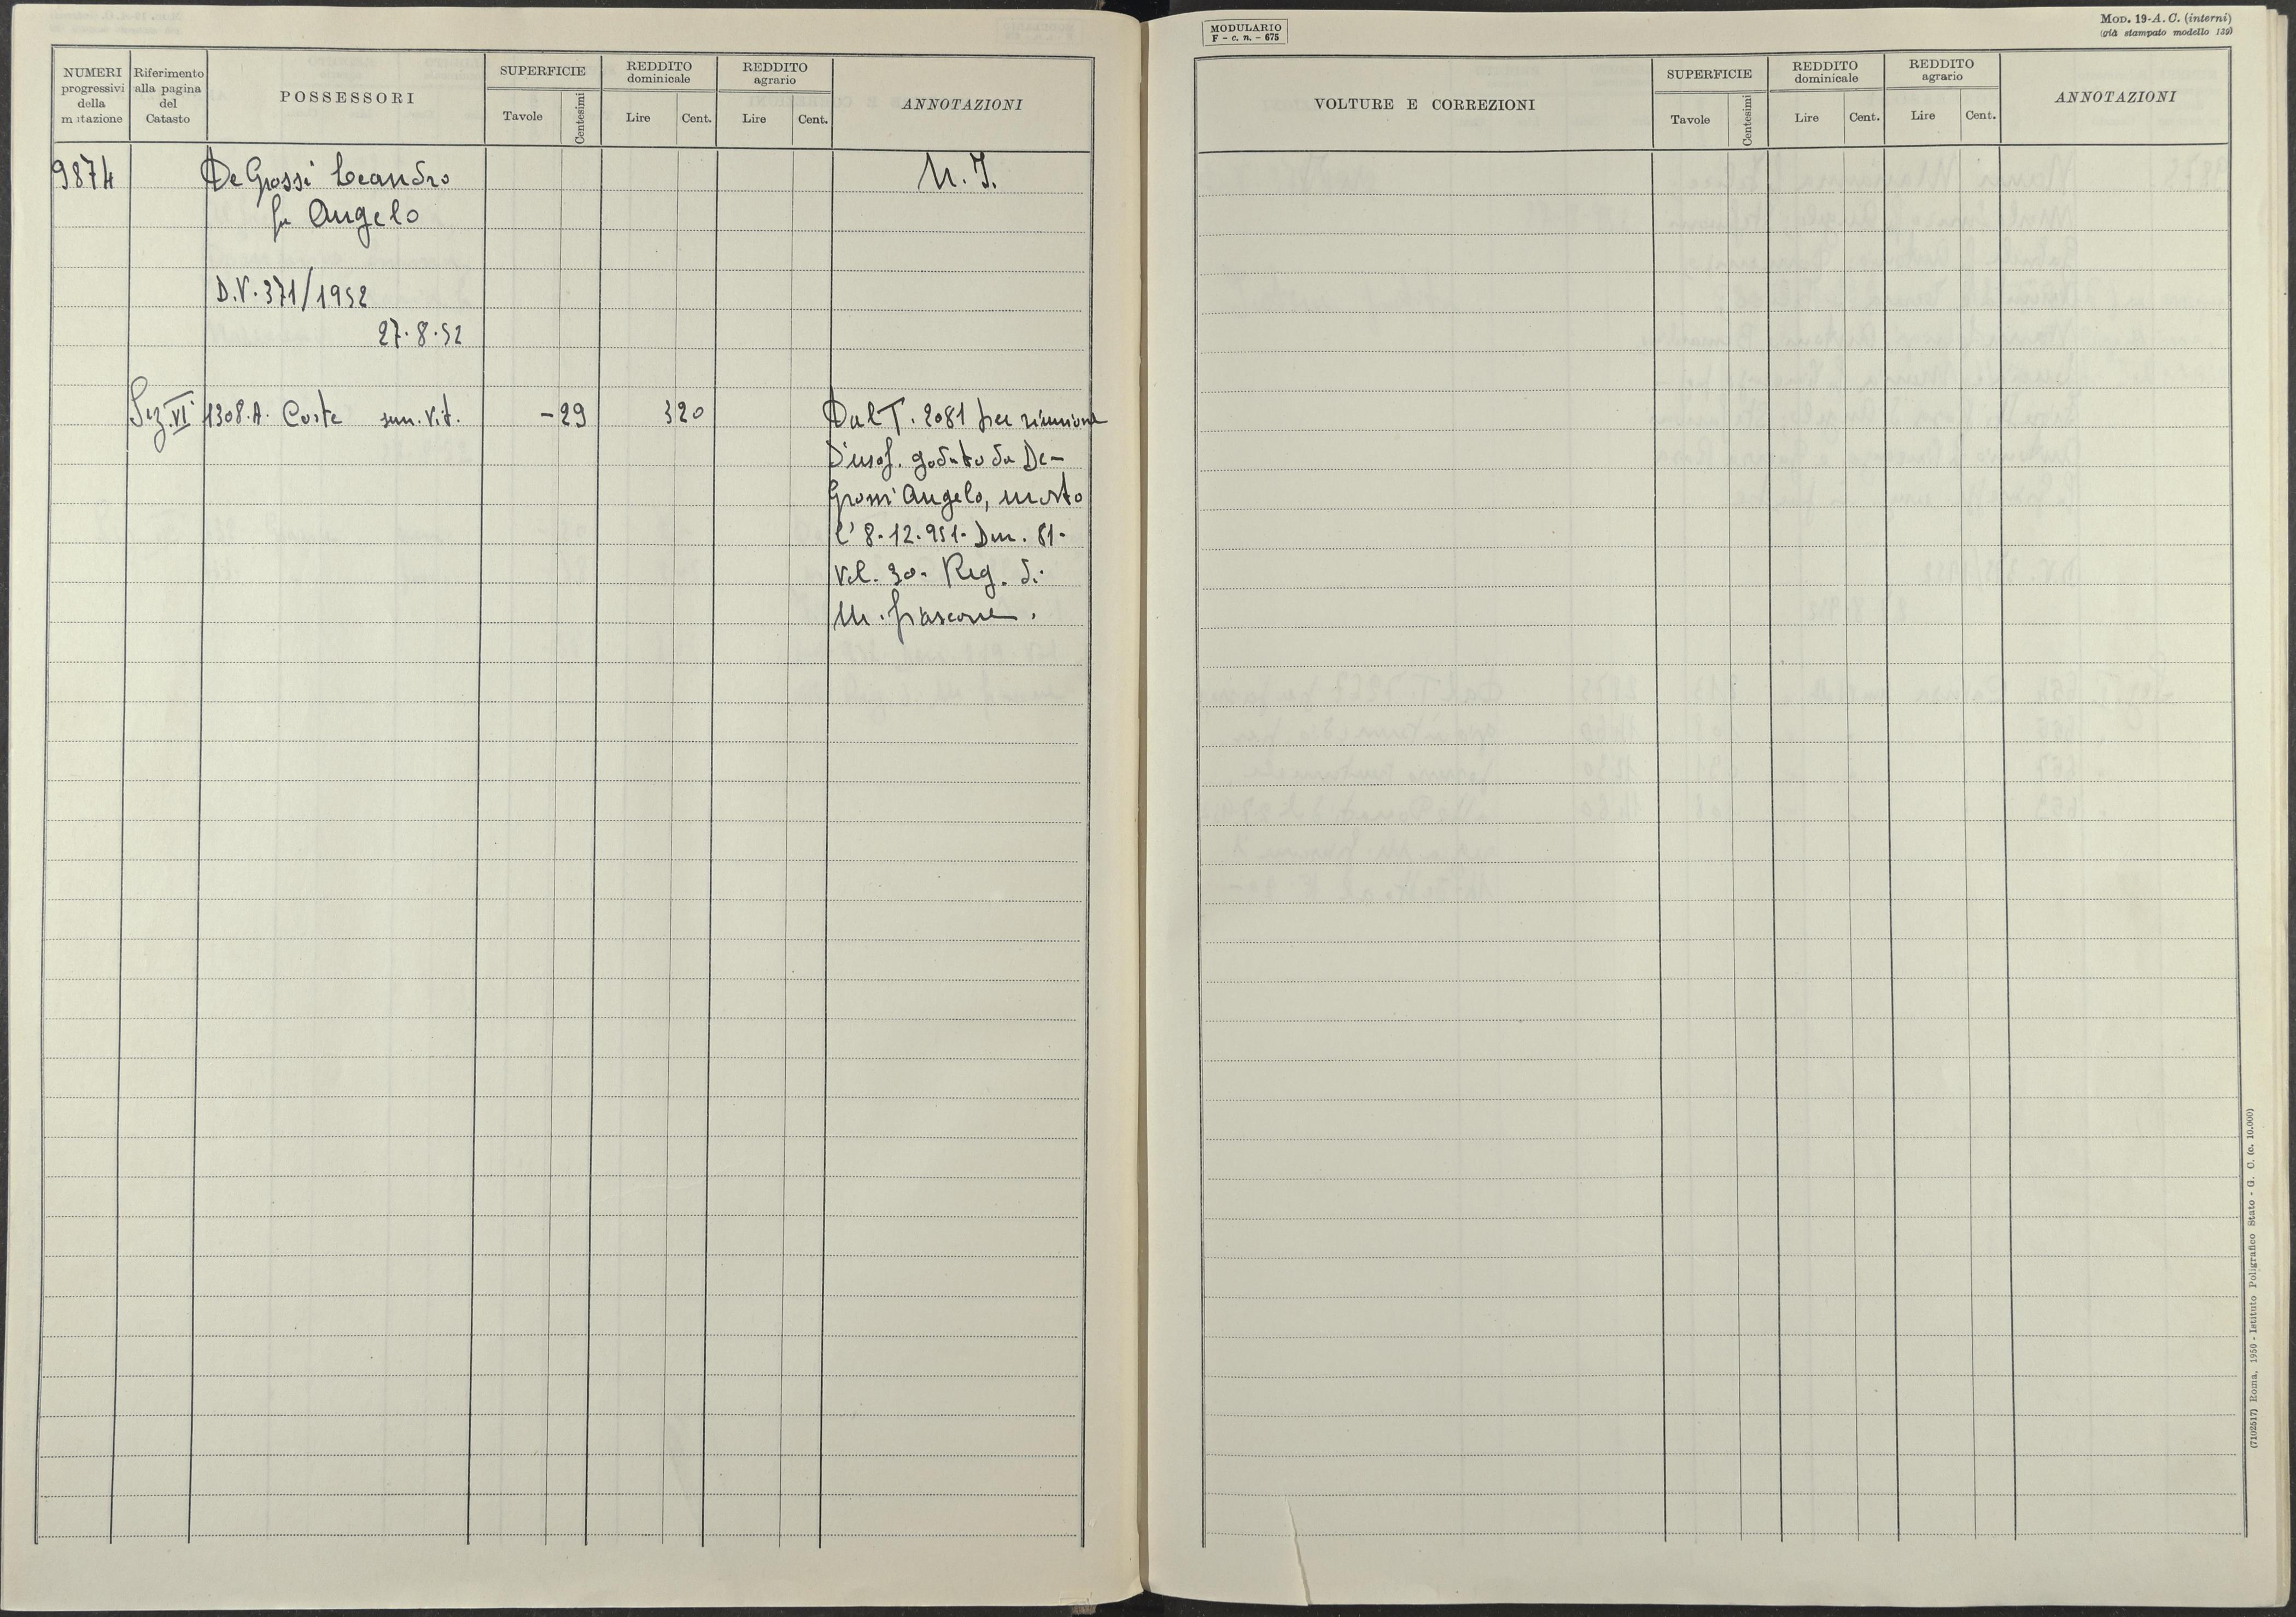 NUMERI progressivi della m tazione
Riferimento alla pagina del Catasto
POSSESSORI
SUPERFICIE
Tavole
Centesimi
REDDITO dominicale
Lire
Cent.
REDDITO agrario
Lire
Cent.
ANNOTAZIONI
9874 De Grossi Leandro
fu Angelo
D.V. 371/1952
27.8.52
Sez. VI 1308.A. Coste sem. vit. -29 320
Dal T. 2081 per riunione
d'usof. goduto da De-
Grossi Angelo, morto
l'8.12.951. Den. 81.
Vol. 30. Reg. di
M. fiascone.
MODULARIO
F - c. n. - 675
MOD. 19-A. C. (interni)
(già stampato modello 139)
VOLTURE E CORREZIONI
SUPERFICIE
Tavole
Centesimi
REDDITO dominicale
Lire
Cent.
REDDITO agrario
Lire
Cent.
ANNOTAZIONI
(7102517) Roma, 1950 - Istituto Poligrafico Stato - G. C. (c. 10.000)